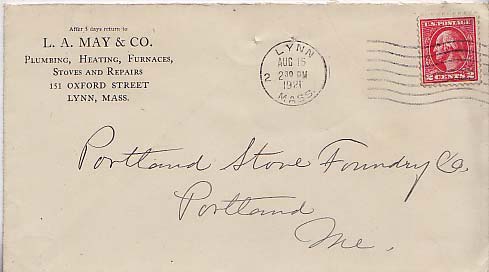 After 5 days return to
L. A. MAY & CO.
PLUMBING, HEATING, FURNACES,
STOVES AND REPAIRS
151 OXFORD STREET
LYNN, MASS.
LYNN
AUG 15
2 30 PM
1921
MASS.
2
U.S. POSTAGE
2 CENTS 2
Portland Stove Foundry Co
Portland
Me.